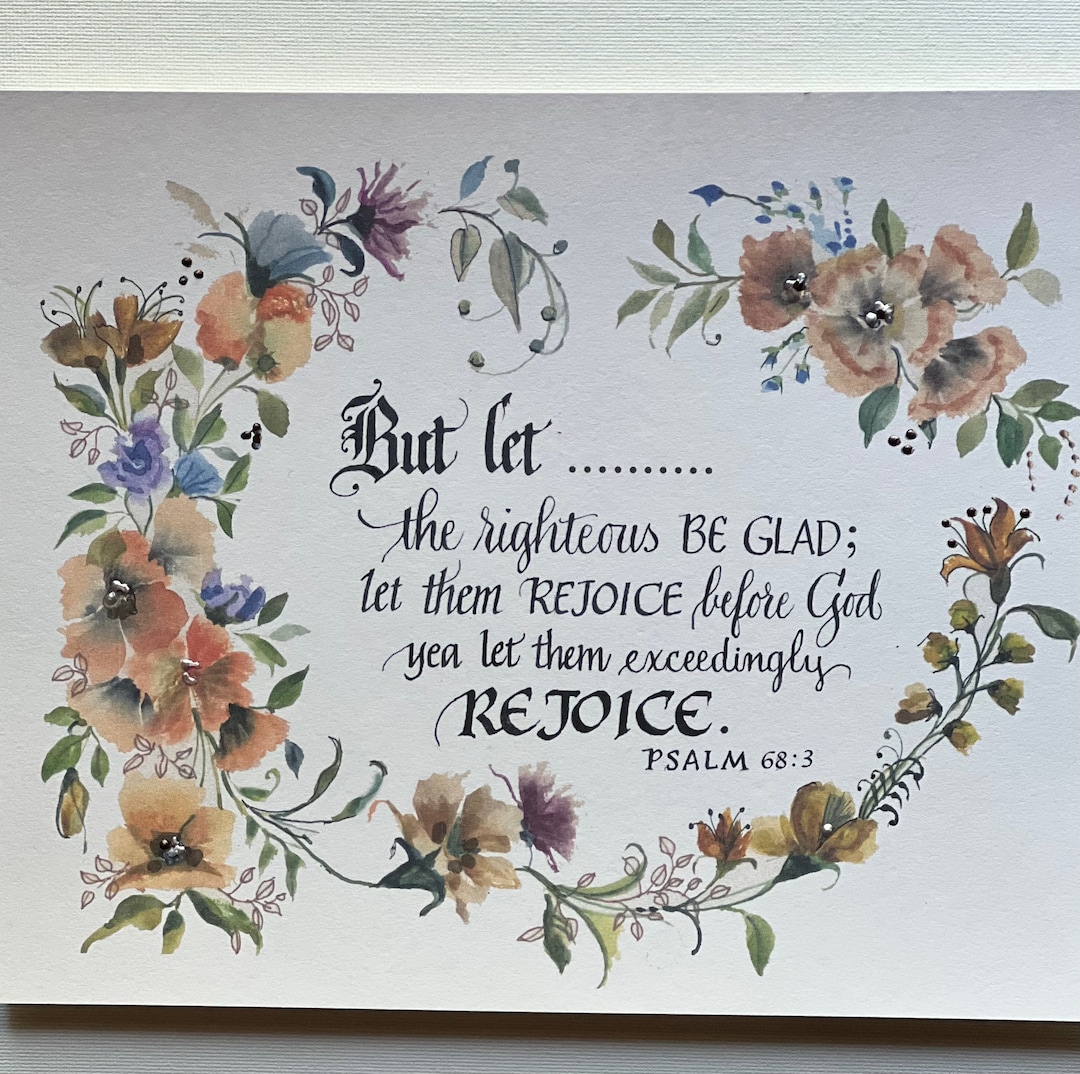 But let ..........
the righteous BE GLAD;
let them REJOICE before God
yea let them exceedingly
REJOICE.
PSALM 68:3